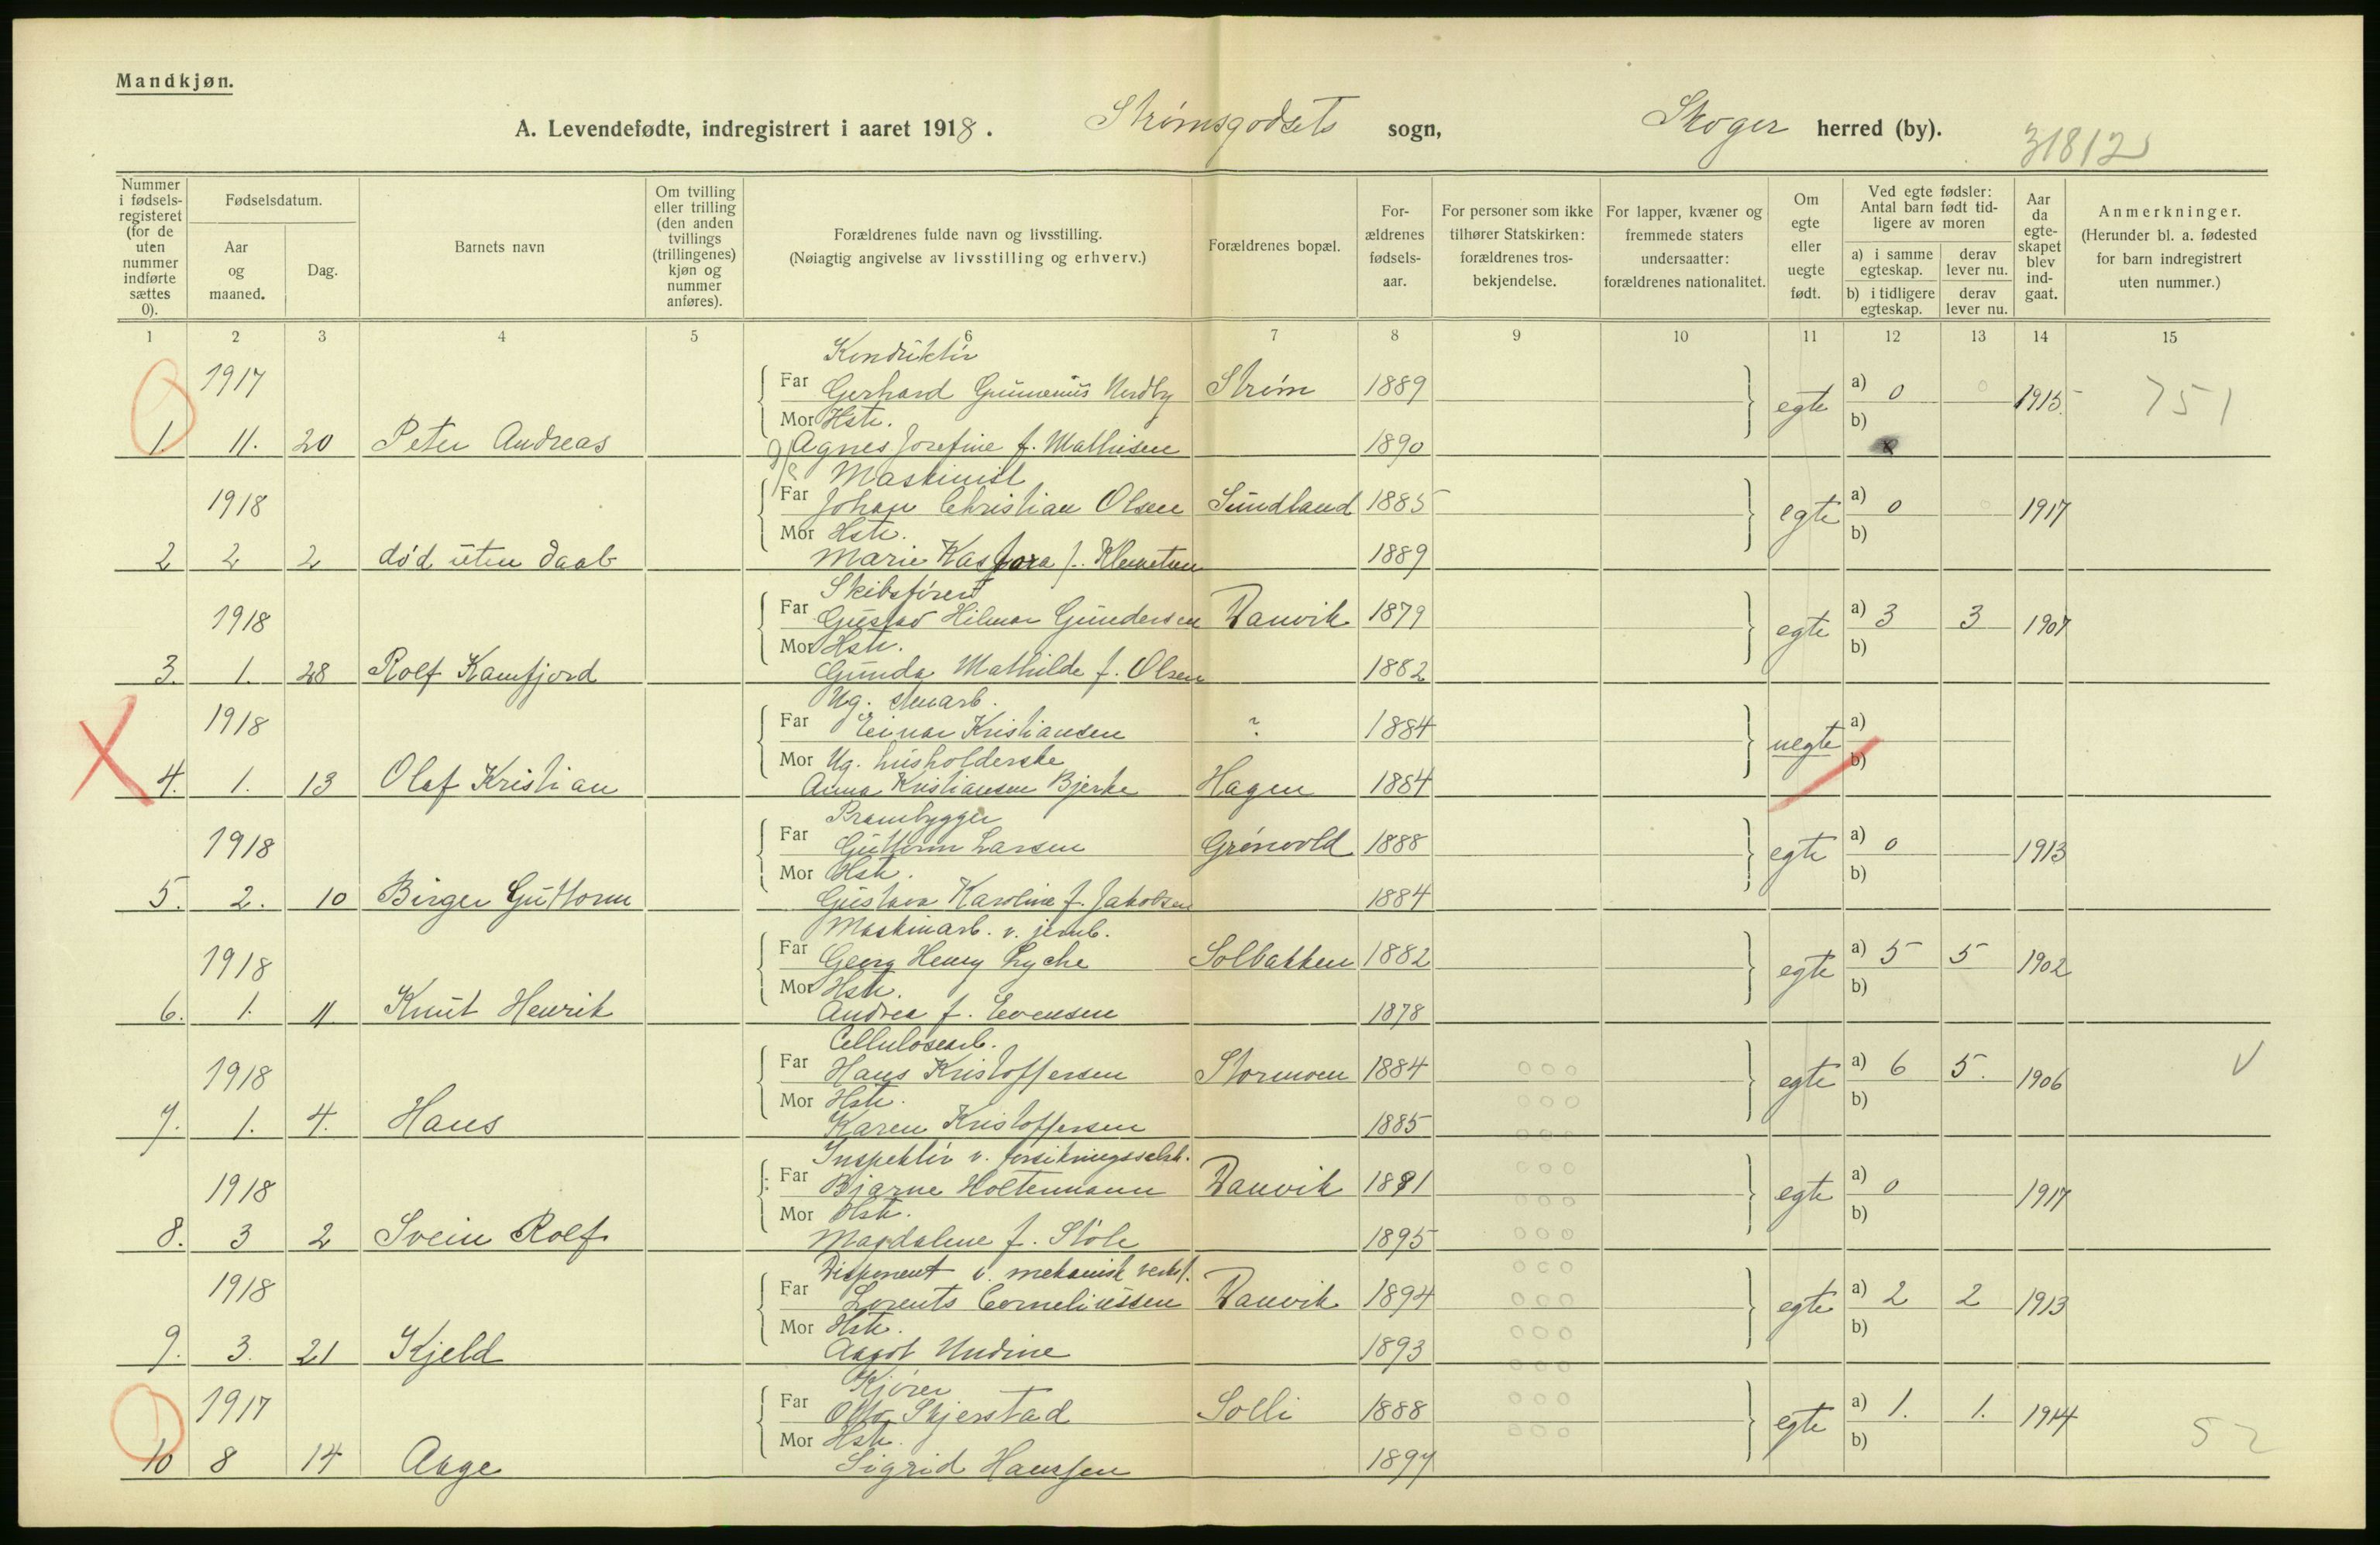 Mandkjøn.
A. Levendefødte, indregistrert i aaret 1918. Strømsgodsets sogn, Skoger herred (by).
31812
Nummer i fødselsregisteret (for de uten nummer indførte sættes 0).
Fødselsdatum.
Aar og maaned.
Dag.
Barnets navn
Om tvilling eller trilling (den anden tvillings (trillingenes) kjøn og nummer anføres).
Forældrenes fulde navn og livsstilling.
(Nøiagtig angivelse av livsstilling og erhverv.)
Forældrenes bopæl.
Forældrenes fødselsaar.
For personer som ikke tilhører Statskirken: forældrenes trosbekjendelse.
For lapper, kvæner og fremmede staters undersaatter: forældrenes nationalitet.
Om egte eller uegte født.
Ved egte fødsler: Antal barn født tidligere av moren
a) i samme egteskap.
derav lever nu.
b) i tidligere egteskap.
derav lever nu.
Aar da egteskapet blev indgaat.
Anmerkninger.
(Herunder bl. a. fødested for barn indregistrert uten nummer.)
1 2 3 4 5 6 7 8 9 10 11 12 13 14 15
Konduktør
1917 Far Gerhard Nordby Strøm 1889 egte a) 0 1915 751
Mor Hstr. b)
1. 11. 20 Peter Andreas Agnes Josefine f. Mathisen 1890
Maskinist
1918 Far Johan Christian Olsen Sundland 1885 egte a) 0 1917
Mor Hstr. b)
2 2 2 død uten daab Marie Kaspara f. Klemetsen 1889
Skibsfører
1918 Far Gustav Hilmar Gundersen Danvik 1879 egte a) 3 3 1907
Mor Hstr. b)
3. 1. 28 Rolf Kamfjord Gunda Mathilde f. Olsen 1882
Ug.
1918 Far Einar Kristiansen ? 1884 uegte a)
Mor Ug. husholderske b)
4. 1. 13 Olaf Kristian Anna Kristiansen Bjerke Hagen 1884
Prambygger
1918 Far Guttorm Larsen Grønvold 1888 egte a) 0 1913
Mor Hstr. b)
5. 2. 10 Birger Guttorm Gustava Karoline f. Jakobsen 1884
Maskinarb. v. jernb.
1918 Far Georg Henry Lyche Solbakken 1882 egte a) 5 5 1902
Mor Hstr. b)
6. 1. 11. Knut Henrik Andrea f. Evensen 1878
Cellulosearb.
1918 Far Hans Kristoffersen Stormoen 1884 egte a) 6 5. 1906 V
Mor Hstr. b)
7. 1. 4. Hans Karen Kristoffersen 1885
Inspektør v. forsikringsselsk.
1918 Far Bjarne Holtermann Danvik 1881 egte a) 0 1917
Mor Hstr. b)
8. 3 2 Svein Rolf Magdalene f. Støle 1895
Disponent v. mekanisk verkst.
1918 Far Lorents Corneliussen Danvik 1894 egte a) 2 2 1913
Mor Hstr. b)
9. 3. 21 Kjeld Aagot Undine 1893
Kjører
1917 Far Otto Skjerstad Solli 1888 egte a) 1. 1. 1914 52
Mor Hstr. b)
10 8 14 Aage Sigrid Hanssen 1897